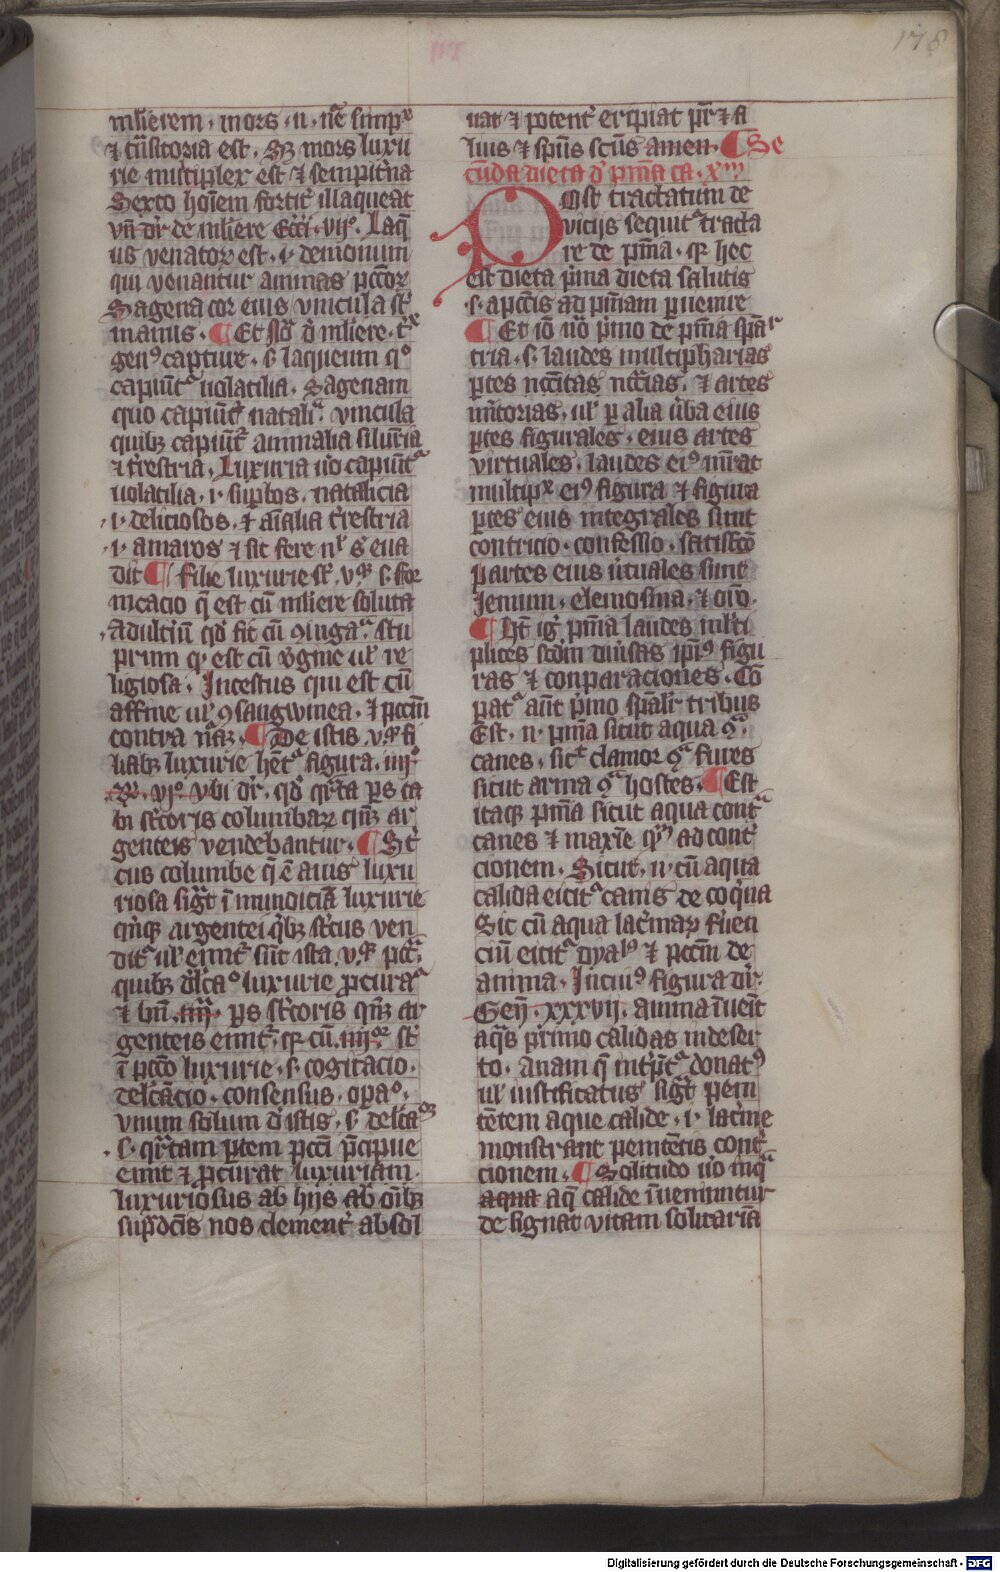 178
mlierem · mors · n · nē simpˣ
⁊ tͣnsitoria est · Sꝫ mors luxu
rie mltiplex est ⁊ sempit̉na
Sexto hoīem fortit̉ illaqueat
vn̄ dr̄ de mliere Ecc̄i · vijº · Laq̄
us venatoꝝ est · i · demonum
qui venantur animas pcc̄oꝝ
Sagena cor eius vincula st̄
manus · ¶ Et
gen⁹ capture · s · laqueum qͦ
capiūt᷑ volatilia · Sagenam
quo capiūt᷑ natalia · vincula
quibꝫ capiūt᷑ animalia siluēia
⁊ t̉restria · Luxuria v̉o capiūt᷑
volatilia · i · suꝑbos · natalicia
· i · deliciosos · ⁊ aīalia t̉restria
· i · amaros ⁊ sic fere nl̄ s̄ eua
dit ¶ Filie luxurie st̄ · v · s · for
nicacio q̄ est cū mliere soluta
Adult̉iū qd̄ fit cū ꝯiugata · stu
prum qd̄ est cū v̉gine ul̄ re
ligiosa · Incestus qui est cū
affine ul̄ ꝯsangwinea · ⁊ pcc̄m
contra nāꝫ · ¶ De istis · v · fi
liabꝫ luxurie hēt᷑ figura · iiij
· vjº · vbi dr̄ · qd̄ qͣrta ps ca
bi st̉coris columbaꝝ qinqꝫ ar
genteis vendebantur · ¶ St̉
cus columbe q̄ ē auis luxu
riosa siḡt ī mundiciā luxurie
qinqꝫ argentei qͥbꝫ st̉cus ven
dit᷑ ul̄ emit᷑ sūt ista · v · pcc̄a
quibꝫ dl̄cac̄o luxurie ꝓcurat᷑
⁊ bn̄ · iiij · ps st̉coris qinqꝫ ar
genteis emit᷑ · qꝛ cū · iiijᵒʳ st̄
ī pcc̄o luxurie · s · cogitacio ·
delcāacio · consensus · opac̄o ·
vnum solum d̉ istis · s · delcāc̄oꝫ
· s · qͣrtam ꝑtem pcc̄i p̄cipue
emit ⁊ ꝓcurat luxuriam
luxuriosus ab hijs ab oībꝫ
supͣdcīs nos clement̉ absol
uat ⁊ potent̉ eripiat pr̄ ⁊ fi
lius ⁊ spūs scūs amen · ¶ Se
cūda dieta d̉ pnīa ca · xᵐ
Post tractatum de
vicijs sequit᷑ tracta
re de pnīa · qꝛ hec
est dieta pͥma dieta salutis
· s · a pcc̄is ad pnīam ꝑuenire
¶ Et iō nō pͥmo de pnīa
tria · s · laudes multipharias
ꝑtes nc̄citas nc̄c̄ias · ⁊ artes
ul̄ ꝑ alia v̉ba eius
ꝑtes figurales · eius artes
virtuales · laudes ei⁹ mr̄at
multipˣ ei⁹ figura ⁊ figura
ꝑtes eius integrales sunt
contricio · confessio · satisfc̄o
Partes eius v̉tuales sunt
Jeiunium · elemosina · ⁊ or̄o ·
¶ Hēt ig̉ pnīa laudes ml̄ti
plices scd̄m diủsas ip̄i⁹ figu
ras ⁊ conparaciones · Cō
pat᷑ aūt pͥmo spāl̉r tribus
Est · n · pnīa sicut aqua ꝯͣ
canes · sic̄ clamor ꝯͣ fures
sicut arma ꝯͣ hostes · ¶ Est
itaqꝫ pnīa sicut aqua contͣ
canes ⁊ maxīe qᵐ ad contͥ
cionem · Sicut · n · cū aqua
calida eicit᷑ canis de coqͥna
Sic cū aqua lacͥmaꝝ fluen
ciū eicit᷑ dyalꝰ ⁊ pcc̄m de
anima · In cui⁹ figura dr̄ ·
Gen̄ · xxxvij · anima īueīt
aqͣs pͥmo calidas in deser
to · anam q̄ int̉pt̄᷑ donat⁹
ul̄ iustificatus siḡt peni
tētem aque calide · i · lacͥme
monstrant penitētis contͥ
cionem · ¶ Solitudo v̉o in qͣ
aqua aq̄ calide īueniuntur
designat vitam solitariā
Digitalisierung gefördert durch die Deutsche Forschungsgemeinschaft - DFG